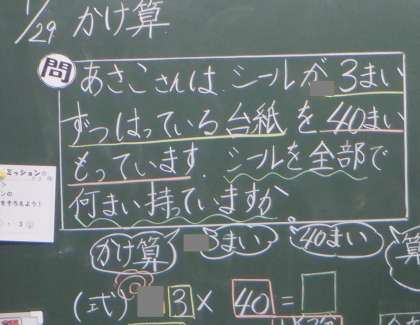 1/29 かけ算
問 あさこさんは、シールが 3まい
ずつはっている台紙を40まい
もっています。シールを全部で
何まい持っていますか。
かけ算 3まい 40まい 算
(式) 3×40=
ミッションの